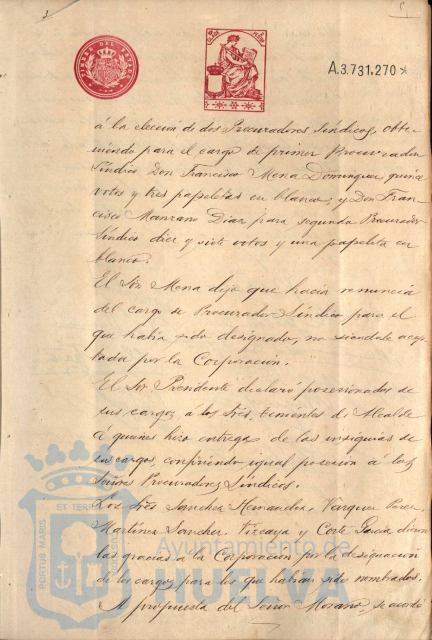 A.3.731.270
á la elección de dos Procuradores Síndicos, obte-
niendo para el cargo de primer Procurador
Síndico Don Francisco Mena Dominguez quince
votos y tres papeletas en blanco, y Don Fran-
cisco Manzano Diaz para segundo Procurador
Síndico diez y siete votos y una papeleta en
blanco.
El Sor. Mena dijo que hacía renuncia
del cargo de Procurador Síndico para el
que había sido designado, no siéndole acep-
tada por la Corporación.
El Sor. Presidente declaró posesionados de
sus cargos a los Sres. tenientes de Alcalde
á quienes hizo entrega de las insignias de
su cargo, confiriendo igual posesión á los
Señores Procuradores Síndicos.
Los Sres Sanchez Hernandez, Vazquez Perez
Martinez Sanchez, Vizcaya y Corte Garcia dieron
las gracias a la Corporación por la designación
de los cargos para los que habían sido nombrados.
A propuesta del Señor Moraño, se acordó
Ayuntamiento de
HUELVA
PORTUS MARIS
ET TERRE